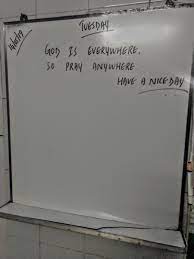 TUESDAY
GOD IS EVERYWHERE.
SO PRAY ANYWHERE.
HAVE A NICE DAY